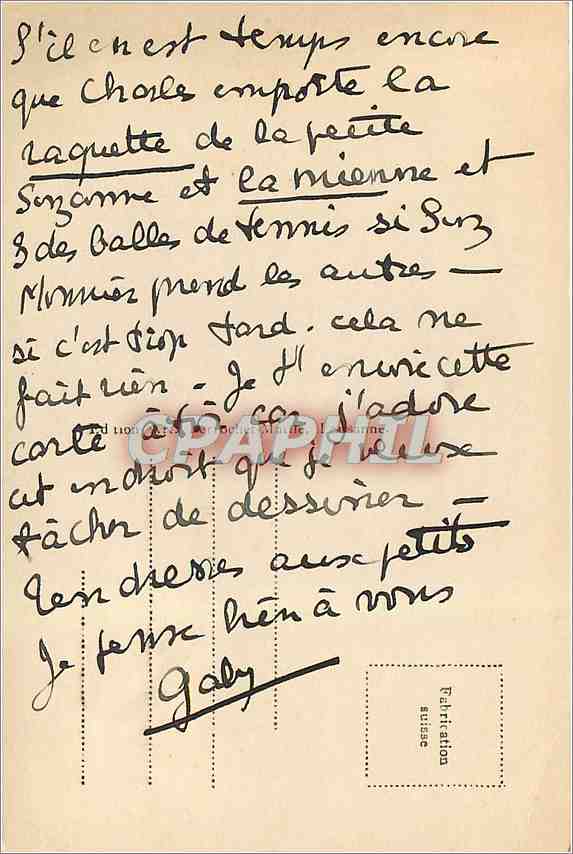 S'il en est temps encore
que Charles emporte la
raquette de la petite
Suzanne et la mienne et
3 des balles de tennis si Suz
Monnier prend les autres —
si c'est trop tard. cela ne
fait rien - Je t'envoie cette
carte à toi car j'adore
Edition Art. Perrochet-Matile, Lausanne.
CPAPHIL
cet endroit que je veux
tâcher de dessiner —
Tendresses aux petits
Je pense bien à vous
Gaby
Fabrication
suisse